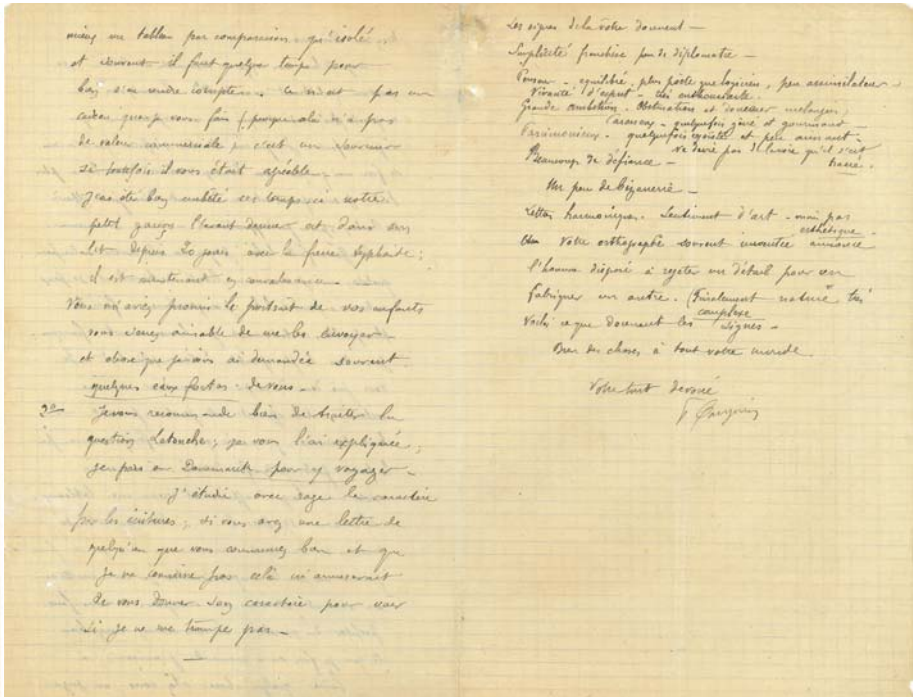 mieux un tableau par comparaison qu'isolé
et souvent il faut quelque temps pour
bien s'en rendre compte. Ce n'est pas un
cadeau que je vous fais (puisque cela n'a pas
de valeur commerciale) c'est un souvenir
si toutefois il vous était agréable.
J'ai été bien embêté ces temps-ci notre
petit garçon l'avant dernier est dans son
lit depuis 20 jours avec la fièvre typhoïde;
il est maintenant en convalescence.
Vous m'avez promis le portrait de vos enfants
vous seriez aimable de me les envoyer
et chose que je vous ai demandée souvent
quelques eaux fortes de vous -
2o Je vous recommande bien de la
question Latouche; je vous l'ai expliquée,
je pars au Danemark pour y voyager -
J'étudie avec rage le caractère
par les écritures; si vous avez une lettre de
quelqu'un que vous connaissez bien et que
je ne connaisse pas celà m'amuserait
de vous donner son caractère pour voir
si je ne me trompe pas -
Les signes de la vôtre donnent -
Simplicité franchise peu de diplomatie -
Penseur - équilibré, plus poète que logicien, peu assimilateur -
Vivacité d'esprit - très enthousiaste.
Grande ambition. Obstination et douceur mélangées
Caresseur - quelquefois gêné et gourmand -
Parcimonieux - quelquefois égoïste et peu aimant -
Ne dévie pas de la voie qu'il s'est
tracée.
Beaucoup de défiance -
Un peu de bizarrerie -
Lettres harmoniques. Sentiment d'art - mais pas
esthétique -
Votre orthographe souvent inventée annonce
l'homme disposé à rejeter un détail pour en
fabriquer un autre. (Finalement nature très
complexe
Voilà ce que donnent les signes -
Bien des choses à tout votre monde.
Votre tout dévoué
P Gauguin